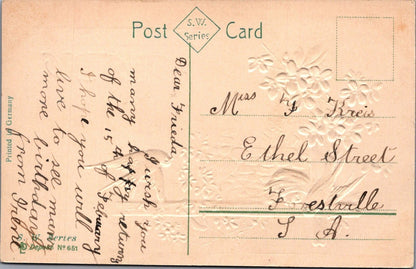 Post Card
S.W.
Series
Dear Frieda
I wish you
many happy returns
of the 15th of February
I hope you will
live to see many
more birthdays
from
Miss F Kreis
Ethel Street
Forestville
S A.
Printed in Germany
S. W. Series
Deponé No 651